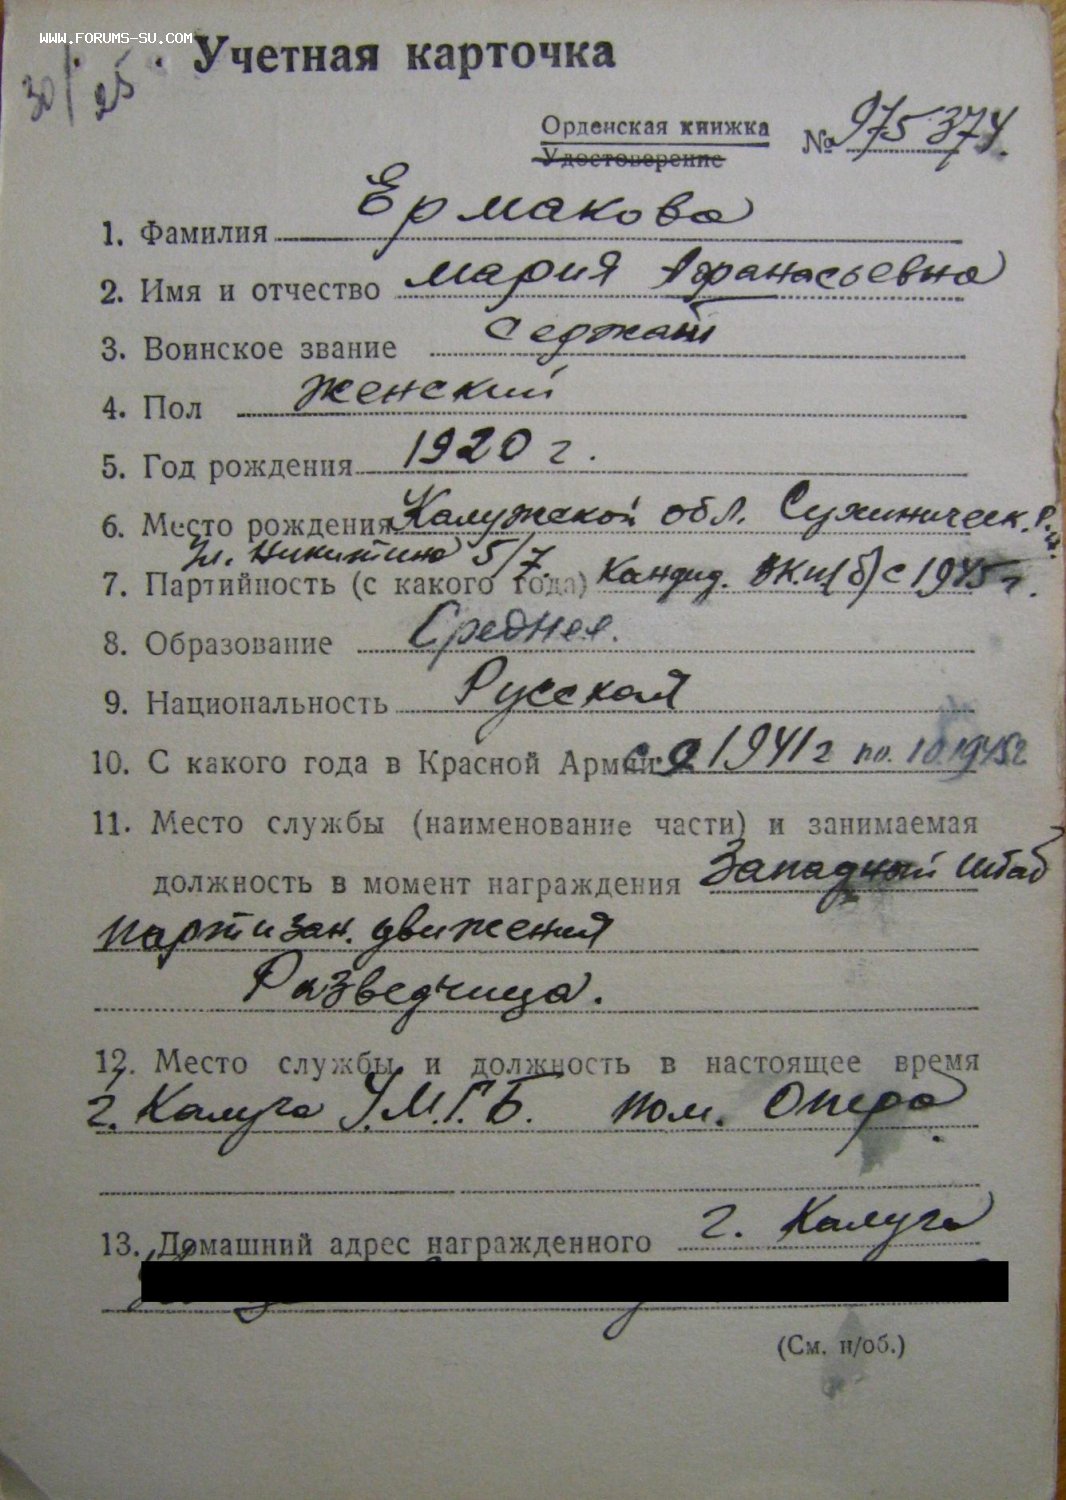 www.forums-su.com
Учетная карточка
30/25
Орденская книжка № 975374.
Удостоверение
1. Фамилия Ермакова
2. Имя и отчество Мария Афанасьевна
3. Воинское звание Сержант
4. Пол Женский
5. Год рождения 1920 г.
6. Место рождения Калужской обл. Сухиническ. р.
Никитино 5/7.
7. Партийность (с какого года) Кандид. ВКП(б) с 1945 г.
8. Образование Среднее.
9. Национальность Русская
10. С какого года в Красной Армии с 1941 г по 10.1945г
11. Место службы (наименование части) и занимаемая
должность в момент награждения Западный штаб
партизан. движения
Разведчица.
12. Место службы и должность в настоящее время
г. Калуга У.М.Г.Б. пом. Опера
13. Домашний адрес награжденного г. Калуга
(См. н/об.)